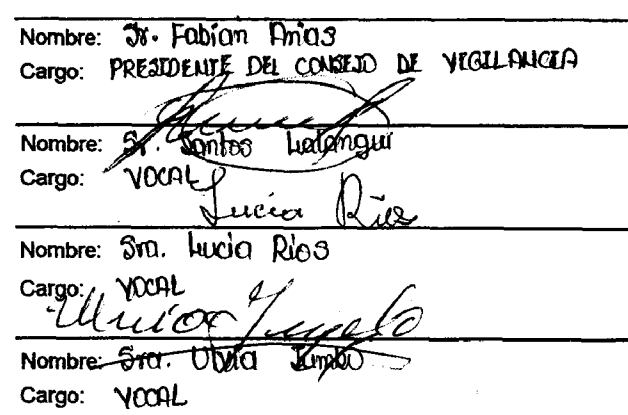 Nombre: Sr. Fabian Arias
Cargo: PRESIDENTE DEL CONSEJO DE VIGILANCIA
Nombre: Sr. Santos Lalangui
Cargo: VOCAL
Lucia Rios
Nombre: Sra. Lucia Rios
Cargo: VOCAL
Nombre: Sra. Jumbo
Cargo: VOCAL